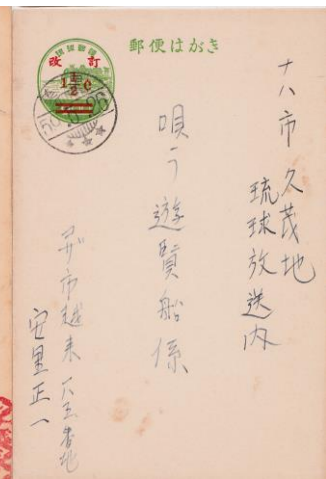 郵便はがき
琉球郵便
改訂
1½¢
ナハ市久茂地
琉球放送内
唄う遊覧船係
コザ市越来
安里正一